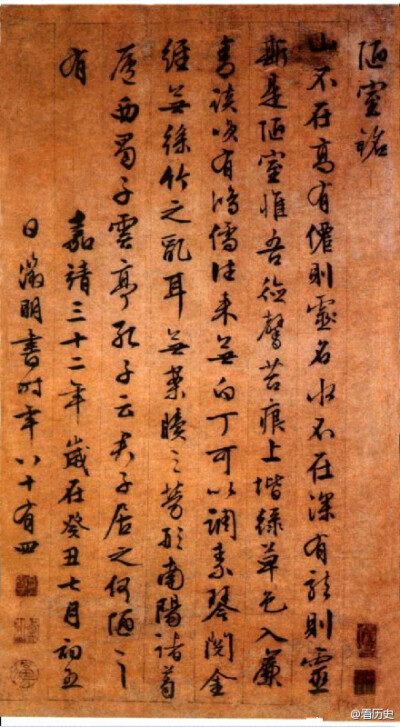 陋室銘
山不在高有僊則靈名水不在深有龍則靈
斯是陋室惟吾德馨苔痕上堦綠草色入簾
青談咲有鴻儒往来無白丁可以調素琴閱金
經無絲竹之亂耳無案牘之勞形南陽諸葛
廬西蜀子雲亭孔子云君子居之何陋之
有
嘉靖三十二年歲在癸丑七月初五
日徵明書時年八十有四
@看历史